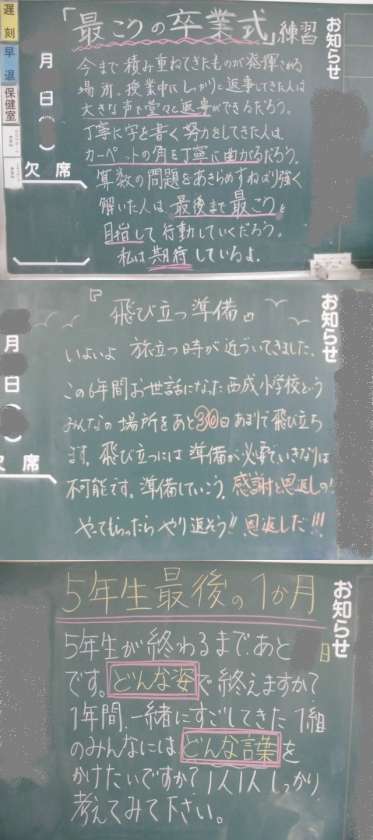 遅刻
早退
保健室
月
日
（
）
欠席
お知らせ
「最こうの卒業式」練習
今まで積み重ねてきたものが発揮される
場所。授業中にしっかりと返事してきた人は
大きな声で堂々と返事ができるだろう。
丁寧に字を書く努力をしてきた人は、
カーペットの角を丁寧に曲がるだろう。
算数の問題をあきらめずねばり強く
解いた人は、最後まで最こうを
目指して行動していくだろう。
私は期待しているよ。
月
日
（
）
欠席
お知らせ
『飛び立つ準備』
いよいよ 旅立つ時が近づいてきました。
この6年間お世話になった西成小学校という
みんなの場所をあと30日あまりで飛び立ち
ます。飛び立つには準備が必要でいきなりは
不可能です。準備していこう。感謝と恩返しの!
やってもらったらやり返そう!!恩返しだ!!!
お知らせ
月
5年生最後の1か月
5年生が終わるまで、あと
です。どんな姿で終えますか？
1年間、一緒にすごしてきた1組
のみんなには、どんな言葉を
かけたいですか？1人1人しっかり
考えてみて下さい。